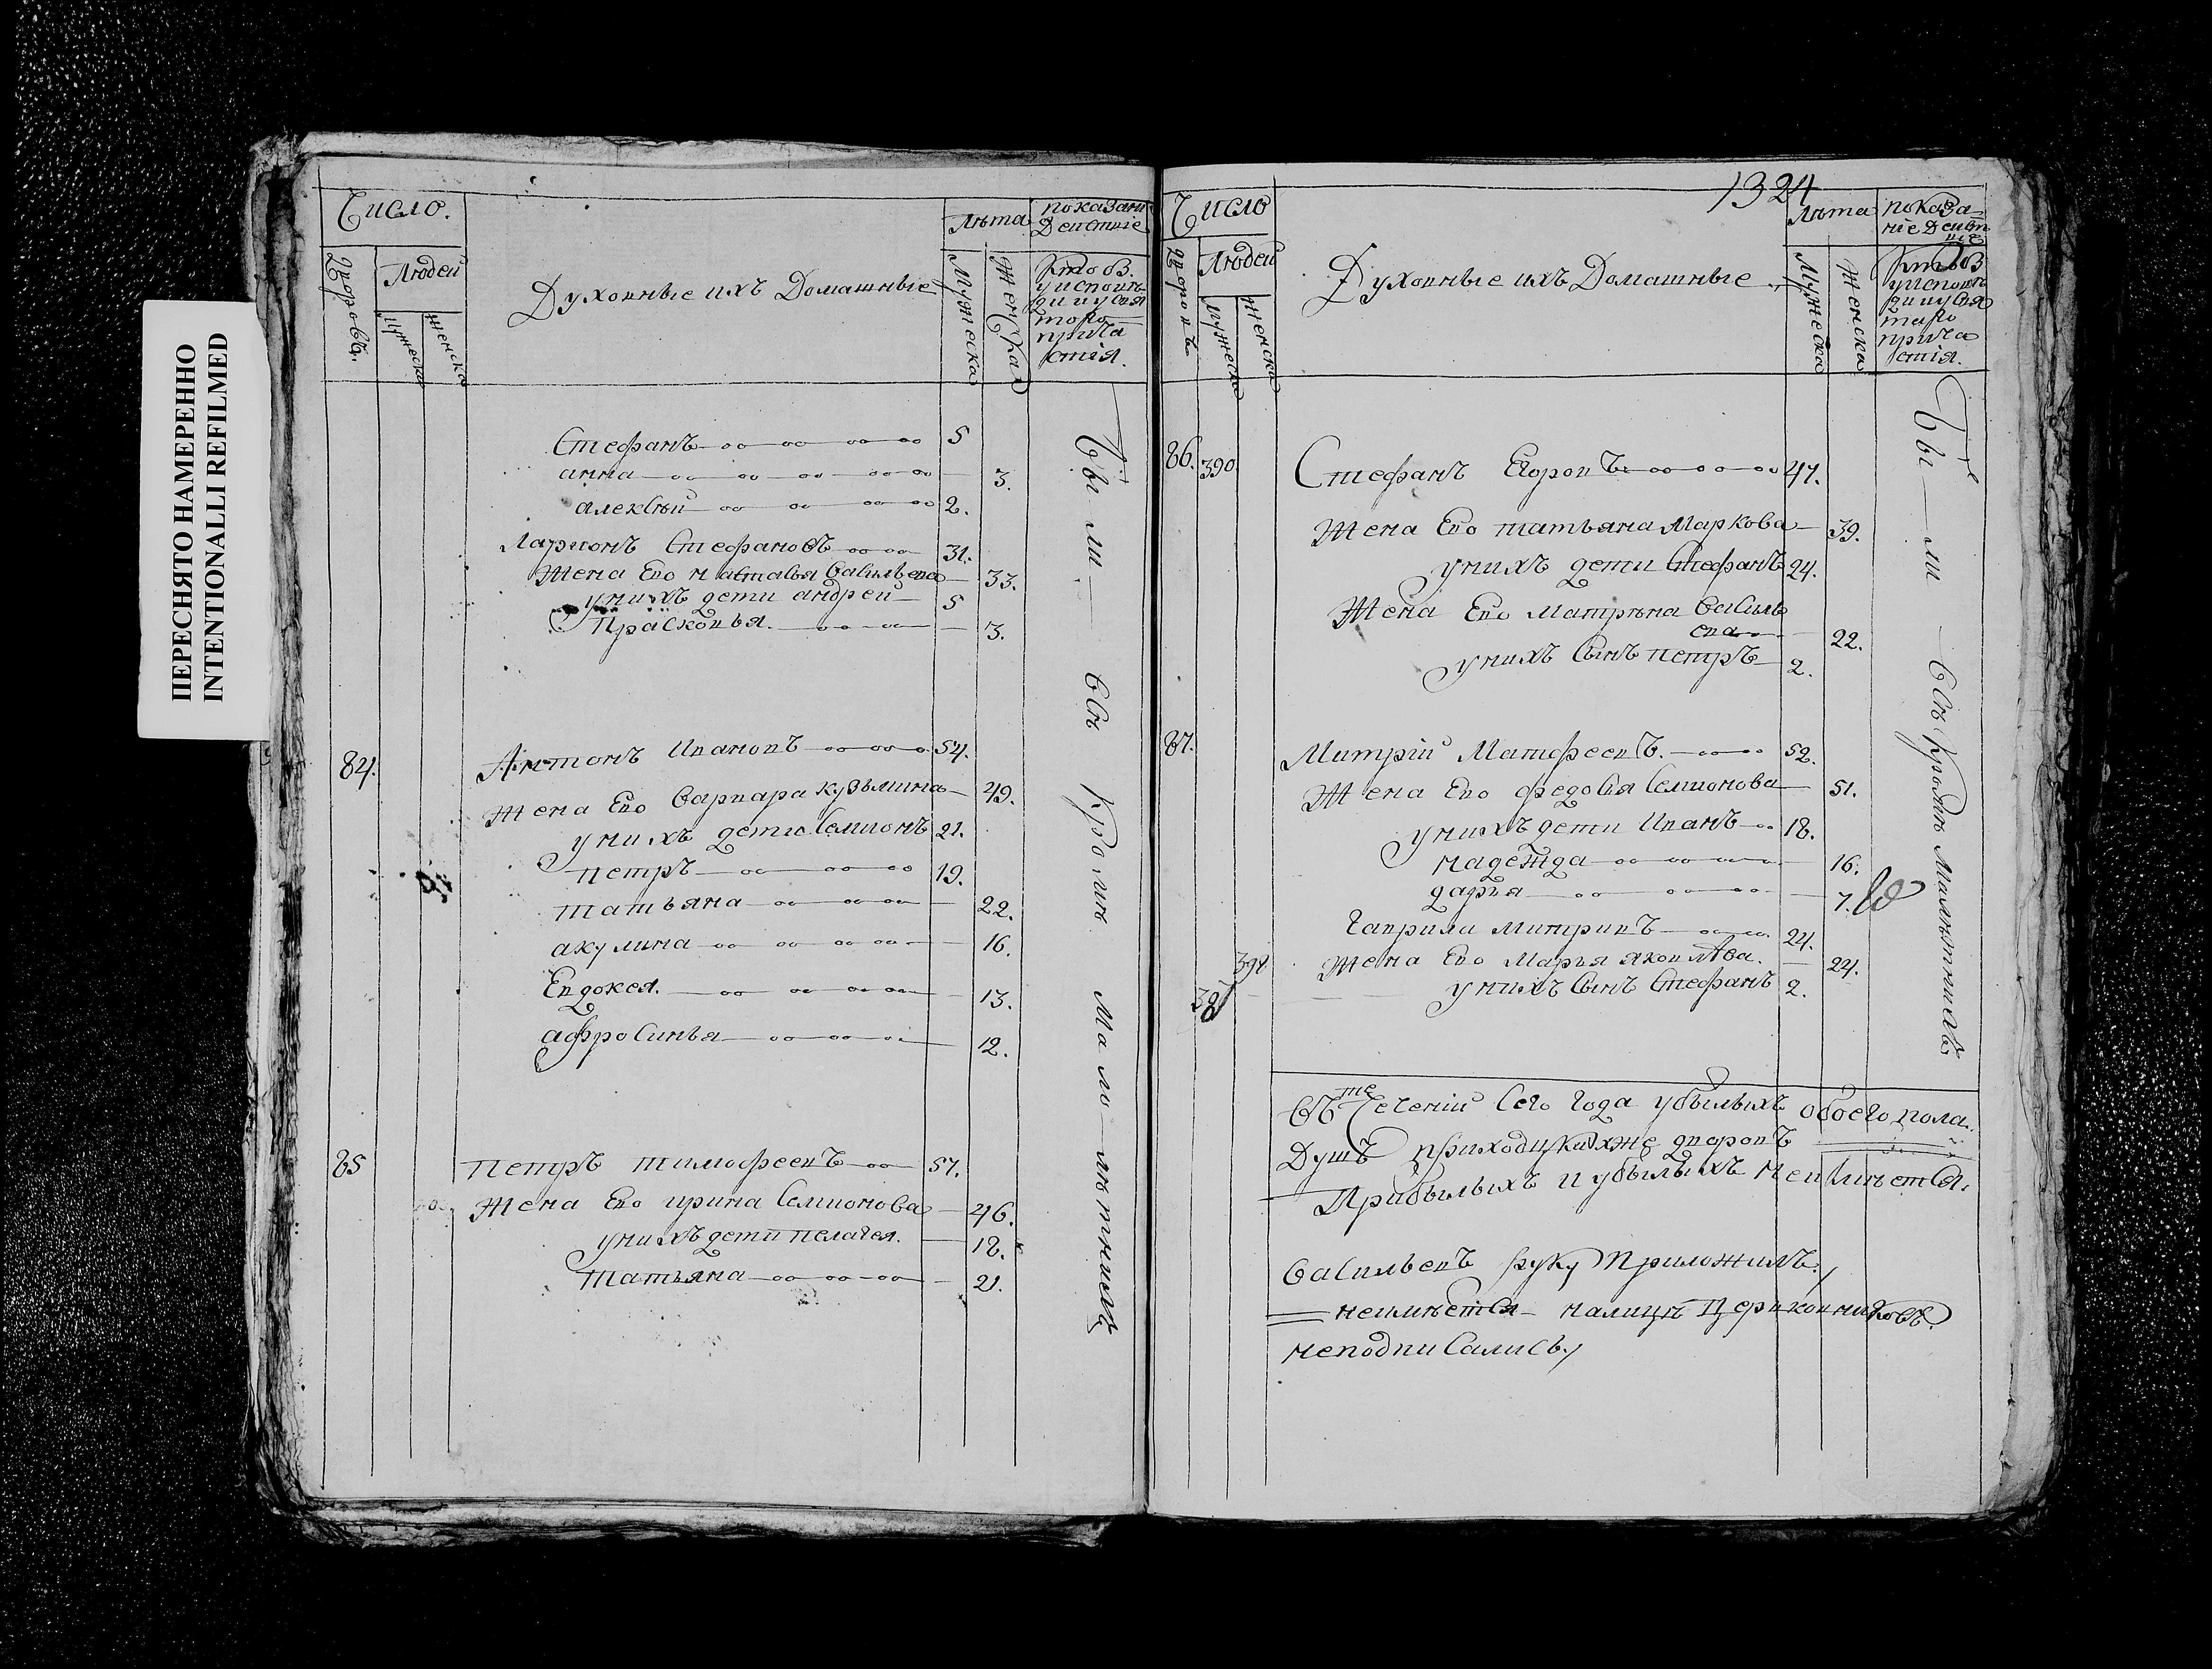 ПЕРЕСНЯТО НАМЕРЕННО
INTENTIONALLI REFILMED
Число.
Дворовъ.
Людей
Мужеска
Женска
Духовные ихъ Домашные
Лѣта
Мужеска
Женска
показани
Деиствие
Кто в.
у исповѣ
ди и у свя
таго
прича
стія.
Стефанъ 5
анна 3.
алексѣй 2.
Ларионъ Стефановъ 31.
Жена Ево наталья васильева 33.
у них дети андреи 5
Прасковья. 3.
84. Антонъ Ивановъ 54.
Жена Ево Варвара кузьмина 49.
у нихъ дети Семионъ 21.
петръ 19.
татьяна 22.
акулина 16.
Евдокея. 13.
афросинья 12.
85 петръ тимофеевъ 57.
Жена Ево ирина Семионова 46.
у нихъ дети пелагея. 18.
татьяна 21.
Бы ли всѣ кромѣ мало лѣтнихъ
1324
Число
Дворовъ
Людей
Мужеска
Женска
Духовные ихъ Домашные
Лѣта
Мужеска
Женска
показа=
ние Деиств
ие
Кто в
у исповѣ
ди и у свя
таго
прича
стія.
86. 390 Стефанъ Егоровъ 47.
Жена Ево татьяна Маркова 39.
у нихъ дети Стефанъ 24.
Жена Ево Матрѣна василь
ева 22.
у нихъ Сынъ петръ 2.
87. Митрій Матфеевъ. 52.
Жена Ево федосья Семионова 51.
у нихъ дети Иванъ 18.
надежда 16.
дарья 7.
Гаврила митривъ 24.
Жена Ево Марья яковлѣва. 24.
у нихъ Сынъ Стефанъ 2.
Бы ли всѣ кромѣ Малѣтнихъ
въ течении Сего Года убылыхъ обоего пола
Душъ приходскихже дворовъ
Прибылыхъ и убылыхъ не имѣется.
Васильевъ руку приложилъ
неимѣется налицѣ Церковниковъ
неподписались